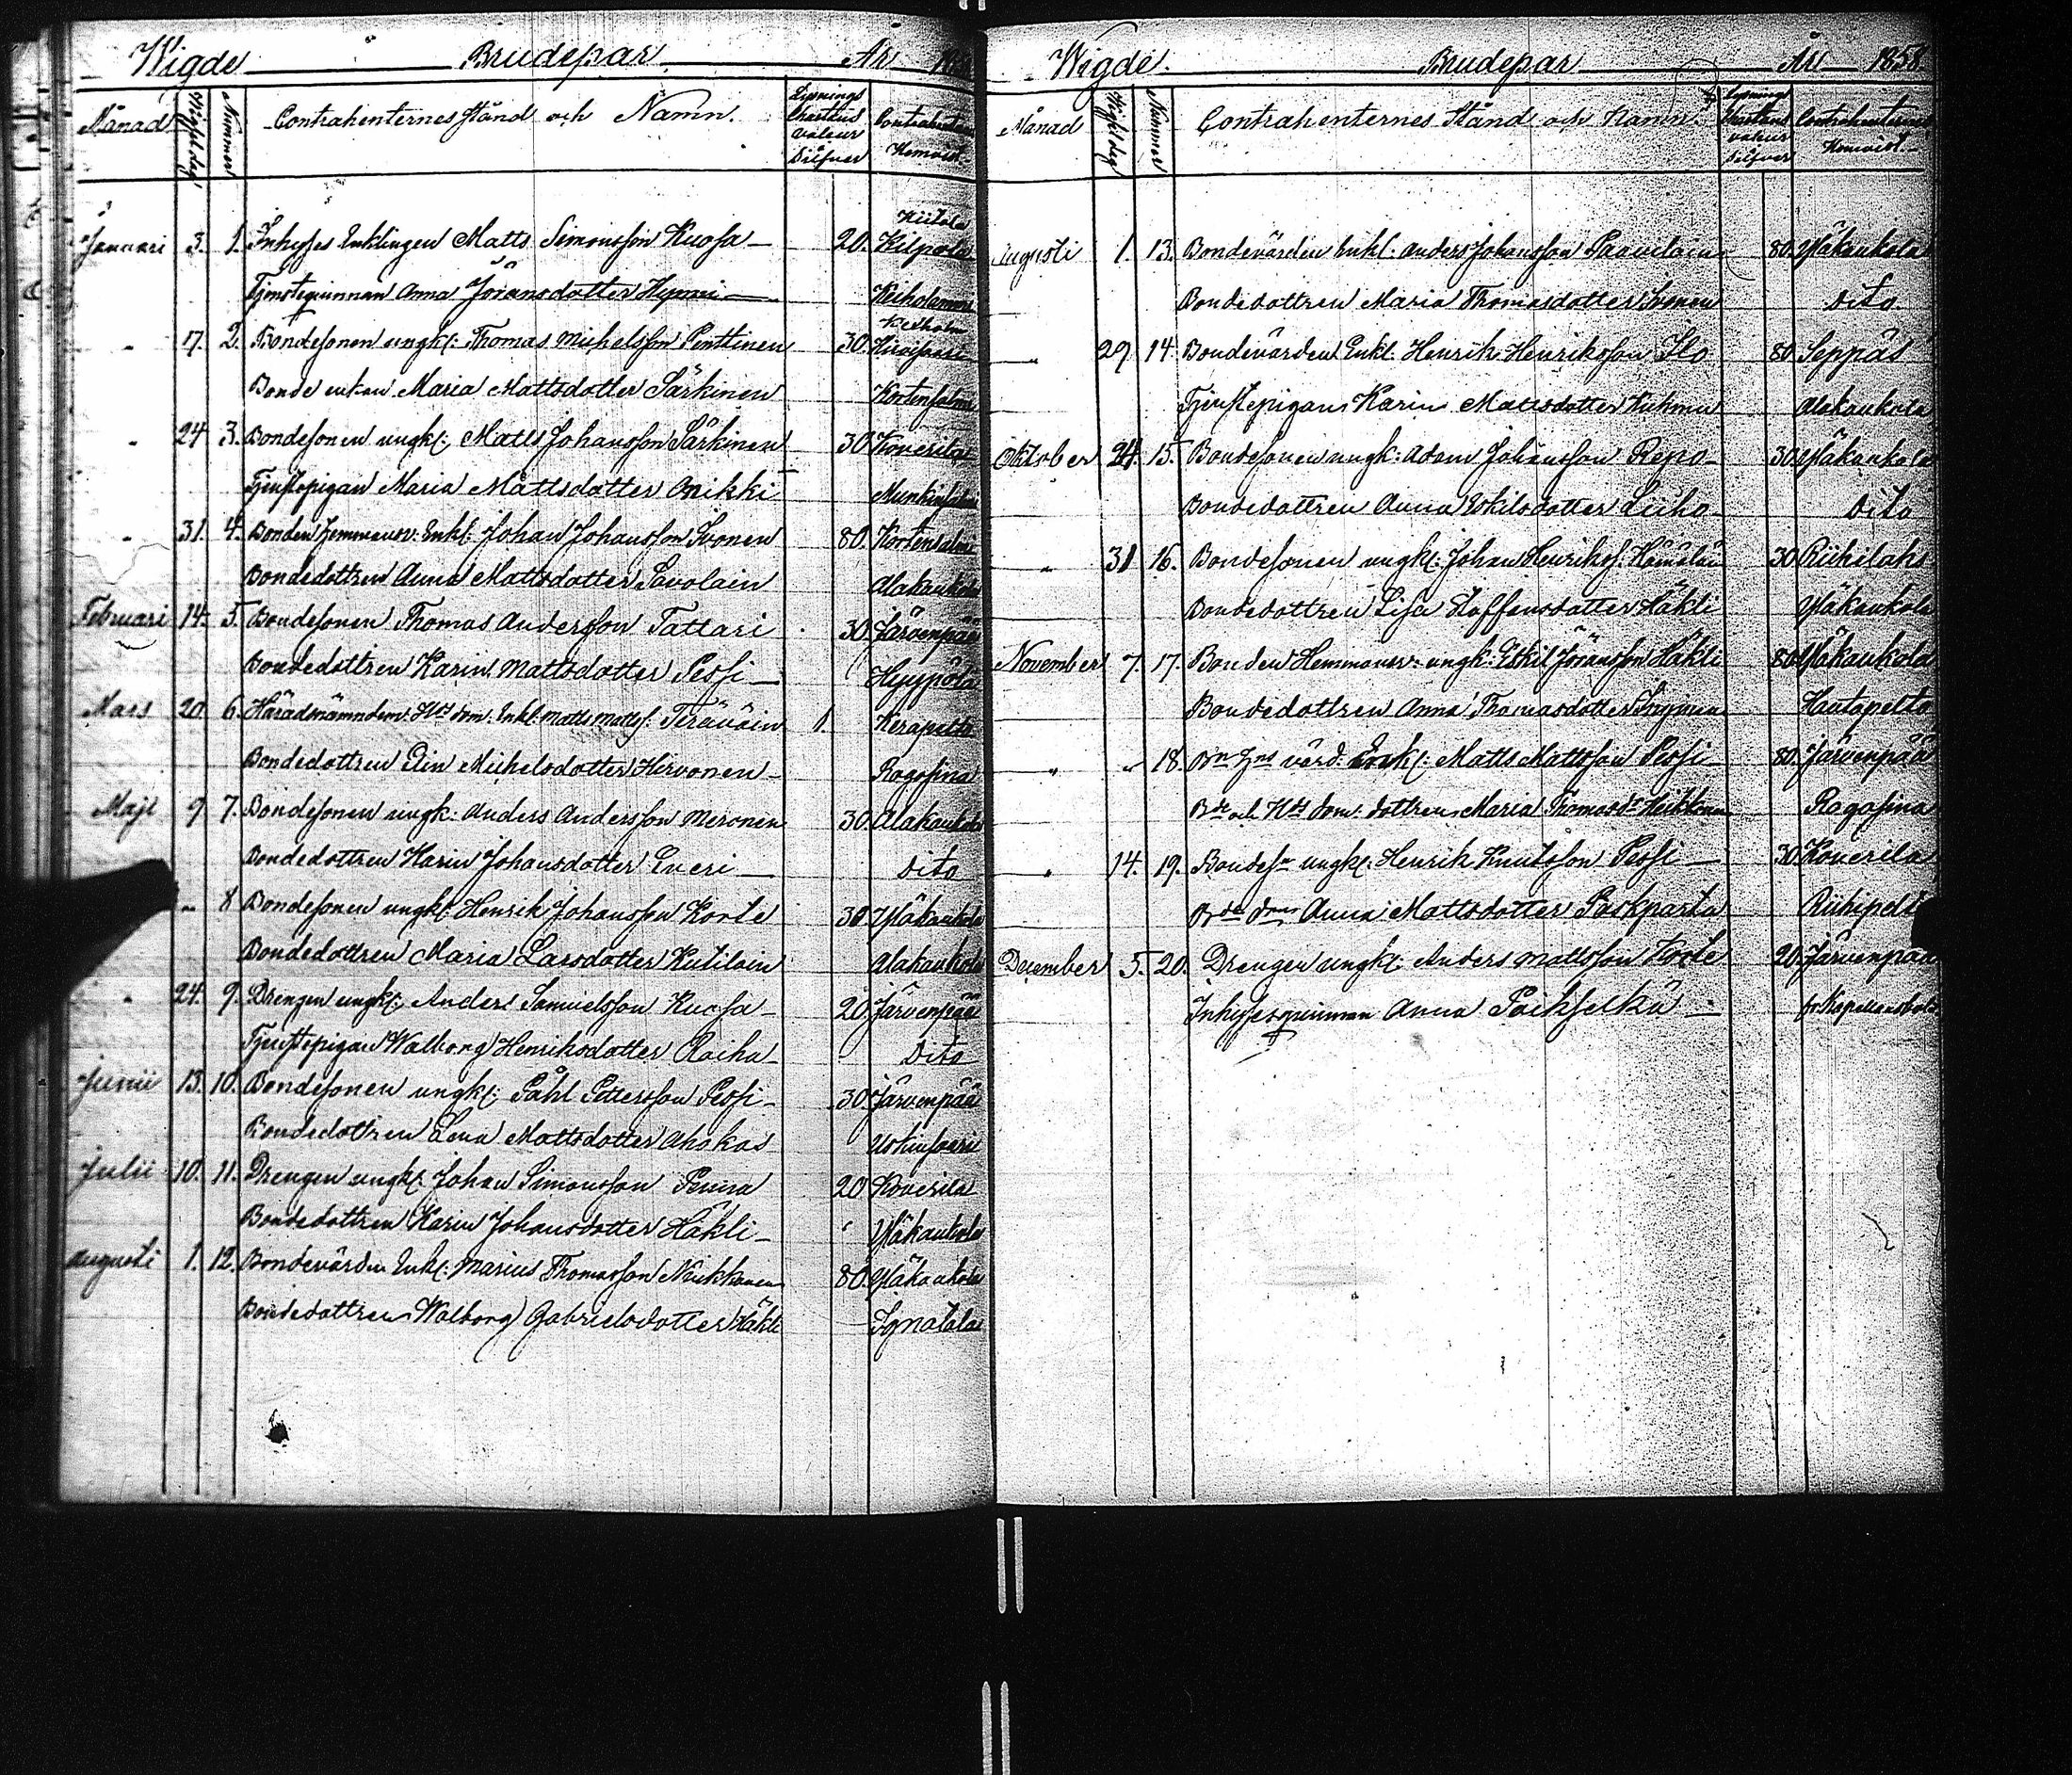 Wigde Brudepar År
Månad Wigsel dag Nummer Contrahenternes Stånd och Namn. Lysnings Charteus valeur Silfver Contrahenternes Hemvist.
Januari 3. 1. Inhyses Enklingen Matts Simonsson Kuosa 20. Kiitola Kilpola
Tjensteqvinnan Anna Jöransdotter Hyppni Kexholm
" 17. 2. Bondesonen ungk: Thomas Michelsson Penttinen 30. Kexholm Hirvisaari
Bonde enkan Maria Mattsdotter Särkinen Kortensalmi
" 24 3. Bondesonen ungk: Matts Johansson Särkinen 30 Koverila
Tjenstepigan Maria Mattsdotter Onikki
" 31. 4. Bonden Hemmansv: Enkl: Johan Johansson Ivonen 80. Kortensalmi
Bondedottren Anna Mattsdotter Savolain Alakaukola
Februari 14. 5. Bondesonen Thomas Andersson Tattari 30 Järvenpää
Bondedottren Karin Mattsdotter Pessi Hyppölä
Mars 20 6. Häradsnämndem: Enkl: Matts Matts: Teräväin 1. Kerapelto
Bondedottren Elin Michelsdotter Hirvonen Rogosina
Maji 9 7. Bondesonen ungk: Anders Andersson Meronen 30 Alakaukola
Bondedottren Karin Johansdotter Everi Dito
" 8 Bondesonen ungk: Henrik Johansson Korte 30 Yläkaukola
Bondedottren Maria Larsdotter Kutilain Alakaukola
" 24. 9. Drengen ungk: Anders Samuelsson Kuosa 20. Järvenpää
Tjenstepigan Walborg Henriksdotter Raiha Dito
Junii 13. 10. Bondesonen ungk: Påhl Pettersson Pessi 30. Järvenpää
Bondedottren Lena Mattsdotter Ahokas Uskinsaari
Julii 10. 11. Drengen ungk: Johan Simonsson Penna 20 Koverila
Bondedottren Karin Johansdotter Häkli Yläkaukola
Augusti 1. 12. Bondevärden Enkl: Marius Thomasson Niukkanen 80. Yläkaukola
Bondedottren Walborg Gabrielsdotter Häkli Ignatala
Wigde Brudepar År 1858
Månad Wigsel dag Nummer Contrahenternes Stånd och Namn. Lysnings Charteus valeur Silfver Contrahenternes Hemvist.
Augusti 1. 13. Bondevärden Enkl: Anders Johansson Paavilain 80. Yläkaukola
Bondedottren Maria Thomasdotter Ivonen Dito
" 29 14. Bondevärden Enkl. Henrik Henriksson Ilo 80. Seppäs
Tjenstepigan Karin Mattsdotter Kuhmu Alakaukola
Oktober 24. 15. Bondesonen ungk: Adam Johansson Repo 30 Yläkaukola
Bondedottren Anna Eskilsdotter Liiho Dito
" 31 16. Bondesonen ungk: Johan Henrikss: Hämäläin 30 Riihilaks
Bondedottren Lisa Staffansdotter Häkli Yläkaukola
November 7. 17. Bonden Hemmansv: ungk: Eskil Jöransson Häkli 80 Yläkaukola
Bondedottren Anna Thomasdotter Hautapelto
" " 18. Bn Hns värd. Enkl: Matts Mattsson Pessi 80. Järvenpää
Bde och Hds dom: dottren Maria Thomasdr Heikkonen Rogosina
" 14. 19. Bondesn ungk: Henrik Knutsson Pessi 30 Koverila
Bde dom Anna Mattsdotter Paskparta Riihipelto
December 5. 20. Drengen ungk: Anders Mattsson Korte 20. Järvenpää
Inhysesqvinnan Anna Poikselkä fr. Kapellansbol